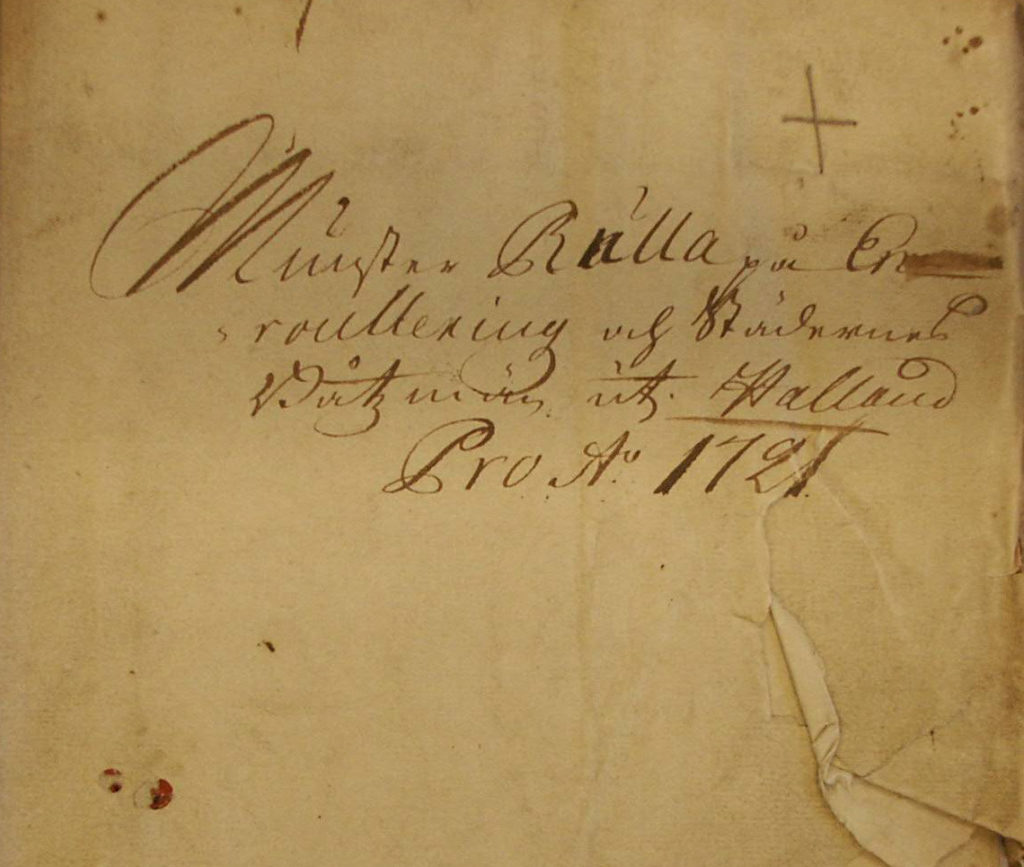 Munster Rulla på En-
roullering och Städernes
Båtzmän ut. Halland
Pro Ao: 1721.